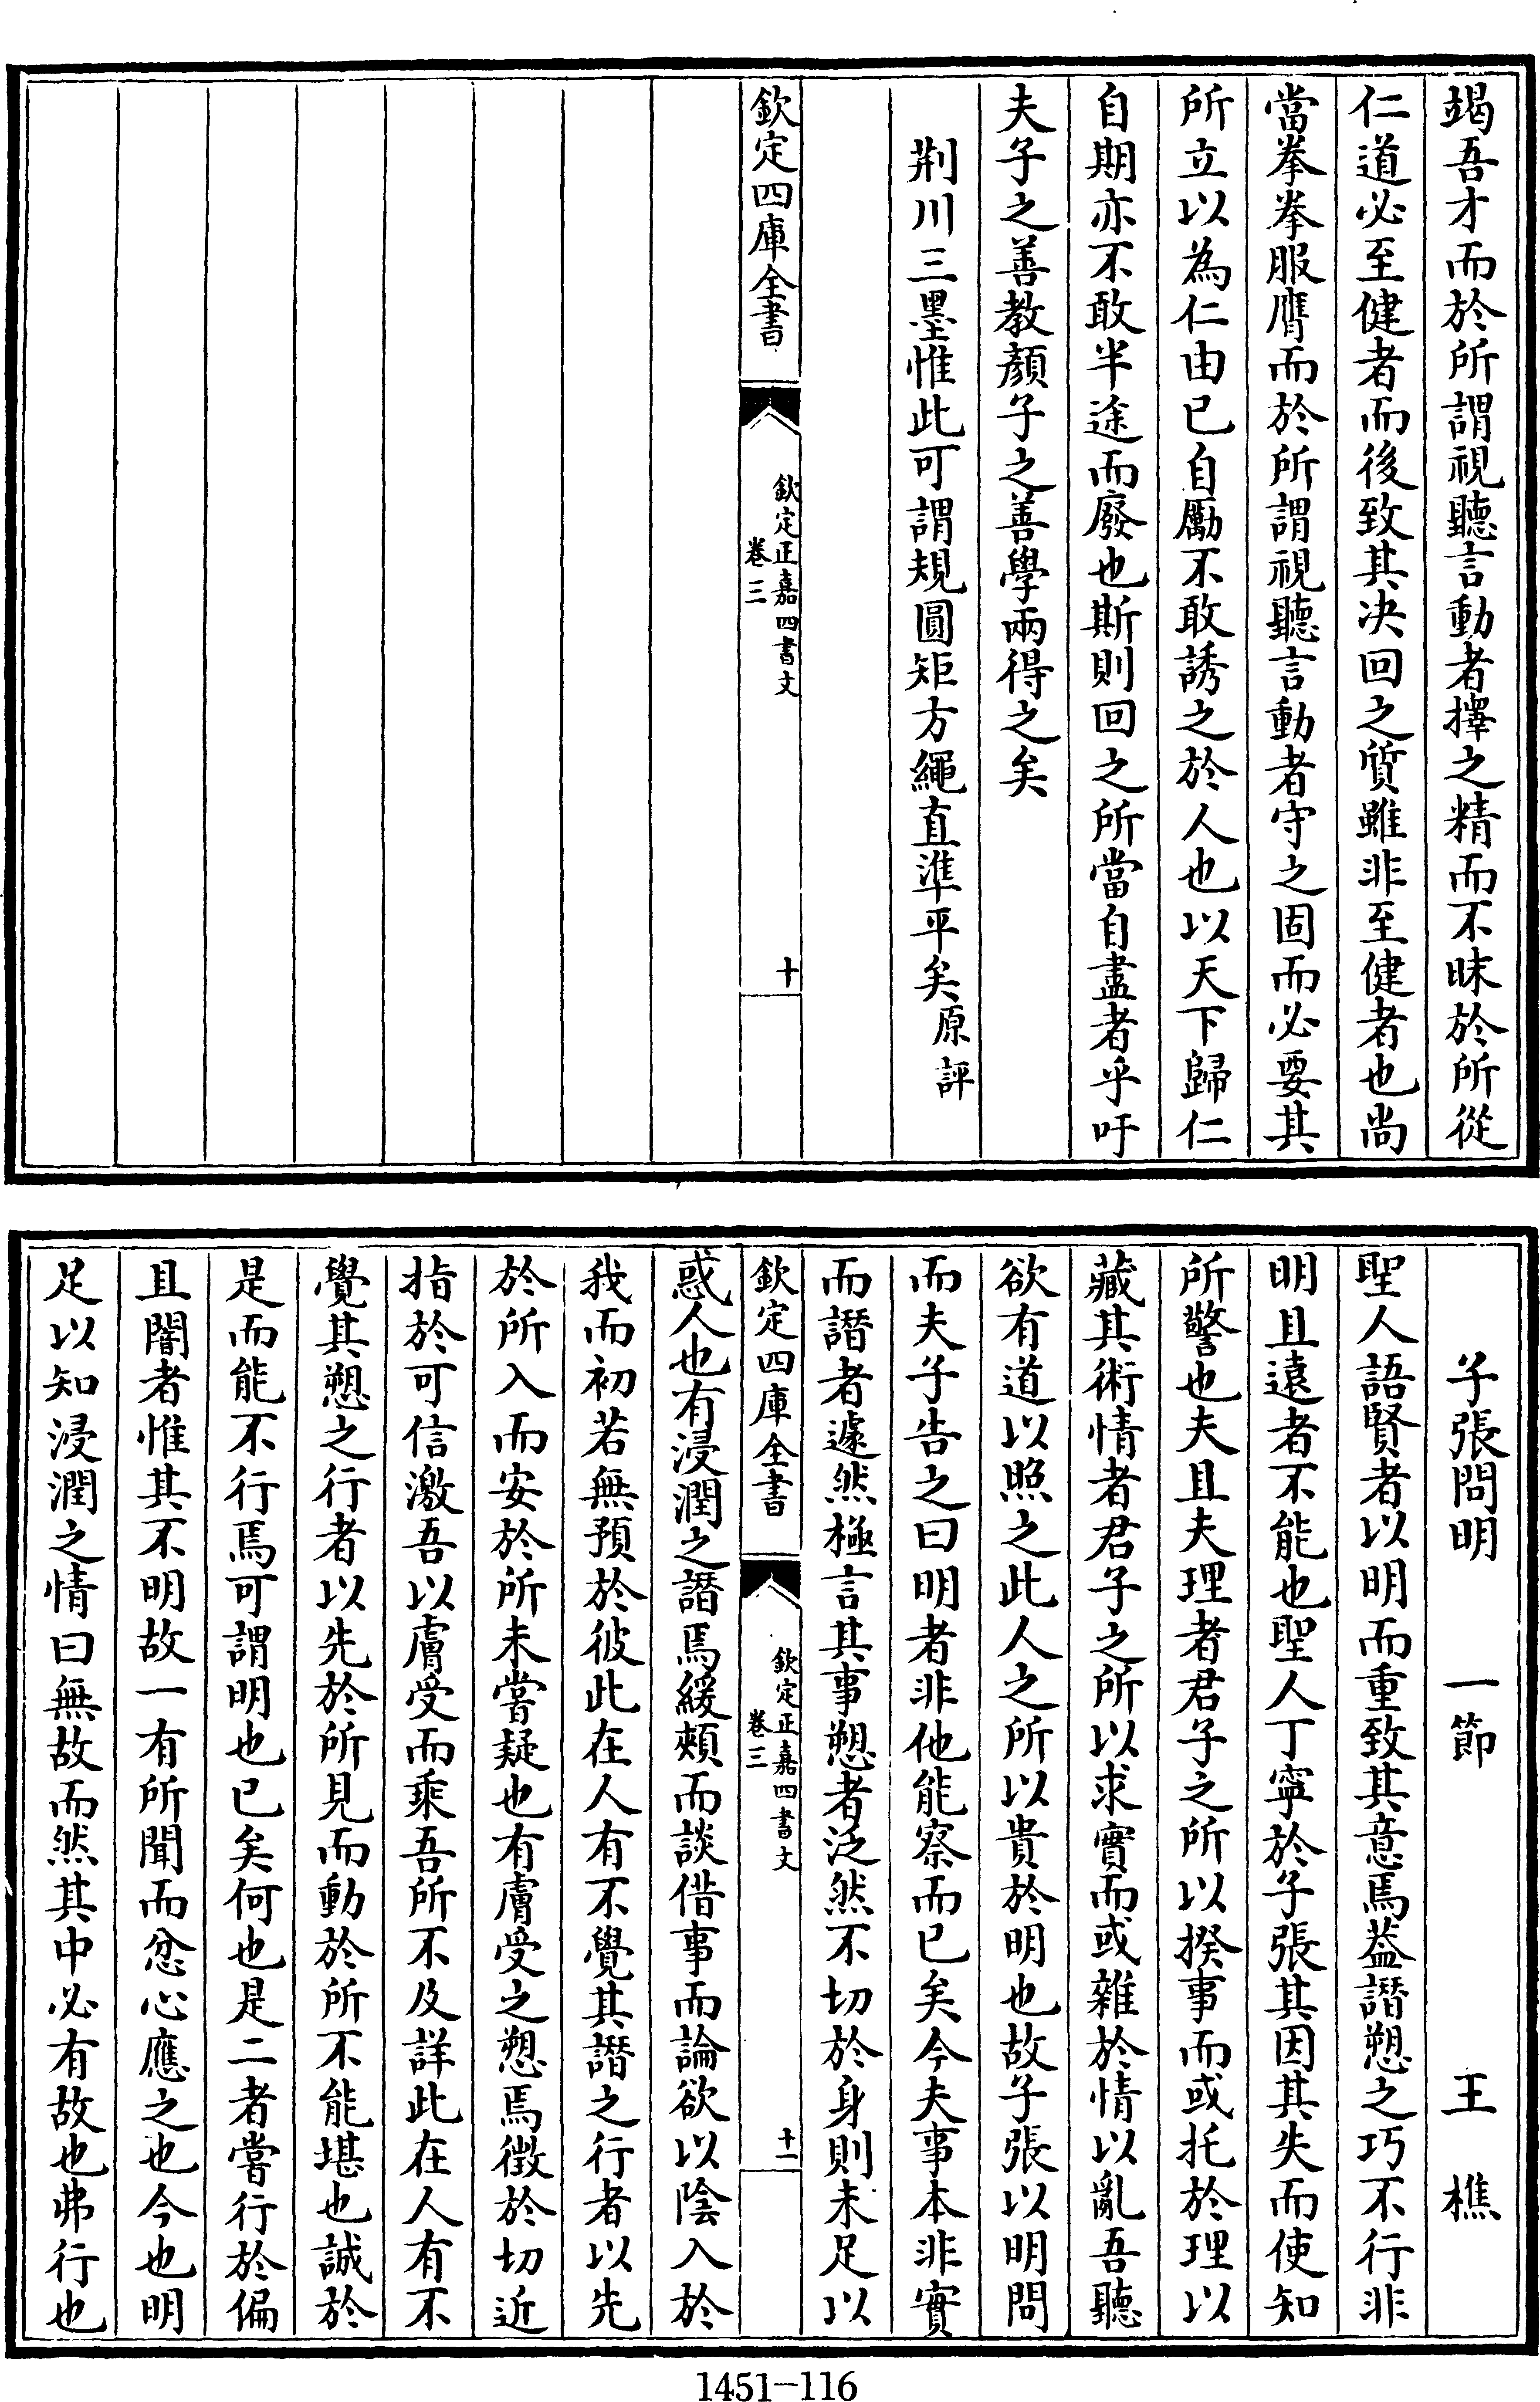 竭吾才而於所謂視聽言動者擇之精而不昧於所從
仁道必至健者而後致其决回之質雖非至健者也尚
當拳拳服膺而於所謂視聽言動者守之固而必要其
所立以為仁由已自勵不敢誘之於人也以天下歸仁
自期亦不敢半途而廢也斯則回之所當自盡者乎吁
夫子之善教顏子之善學兩得之矣
荆川三墨惟此可謂規圓矩方繩直準平矣原評
欽定四庫全書
欽定正嘉四書文
卷三
十
子張問明 一節 王樵
聖人語賢者以明而重致其意焉葢譖愬之巧不行非
明且遠者不能也聖人丁寧於子張其因其失而使知
所警也夫且夫理者君子之所以揆事而或托於理以
藏其術情者君子之所以求實而或雜於情以亂吾聽
欲有道以照之此人之所以貴於明也故子張以明問
而夫子告之曰明者非他能察而已矣今夫事本非實
而譖者遽然極言其事愬者泛然不切於身則未足以
欽定四庫全書
欽定正嘉四書文
卷三
十一
惑人也有浸潤之譖焉緩頰而談借事而論欲以陰入於
我而初若無預於彼此在人有不覺其譖之行者以先
於所入而安於所未嘗疑也有膚受之愬焉徴於切近
指於可信激吾以膚受而乘吾所不及詳此在人有不
覺其愬之行者以先於所見而動於所不能堪也誠於
是而能不行焉可謂明也已矣何也是二者嘗行於偏
且闇者惟其不明故一有所聞而忿心應之也今也明
足以知浸潤之情曰無故而然其中必有故也弗行也
1451-116